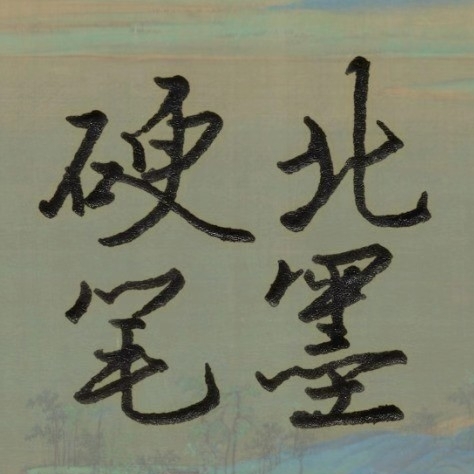 北墨
硬笔